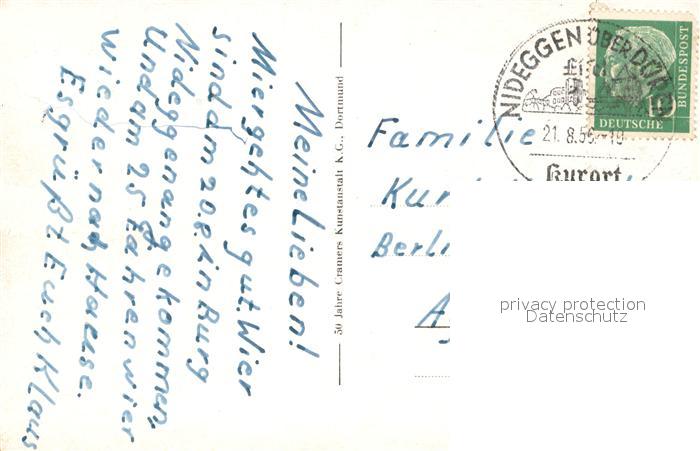 Meine Lieben!
Mier geht es gut. Wier
sind am 20.8. in Burg
Nideggen angekommen,
Und am 25 fahren wier
wieder nach Hause.
Es grüßt Euch Klaus
50 Jahre Cramers Kunstanstalt K.G., Dortmund
Familie
Berli
NIDEGGEN ÜBER
Eifel
21.8.56.-19
Kurort
10
DEUTSCHE
BUNDESPOST
privacy protection
Datenschutz